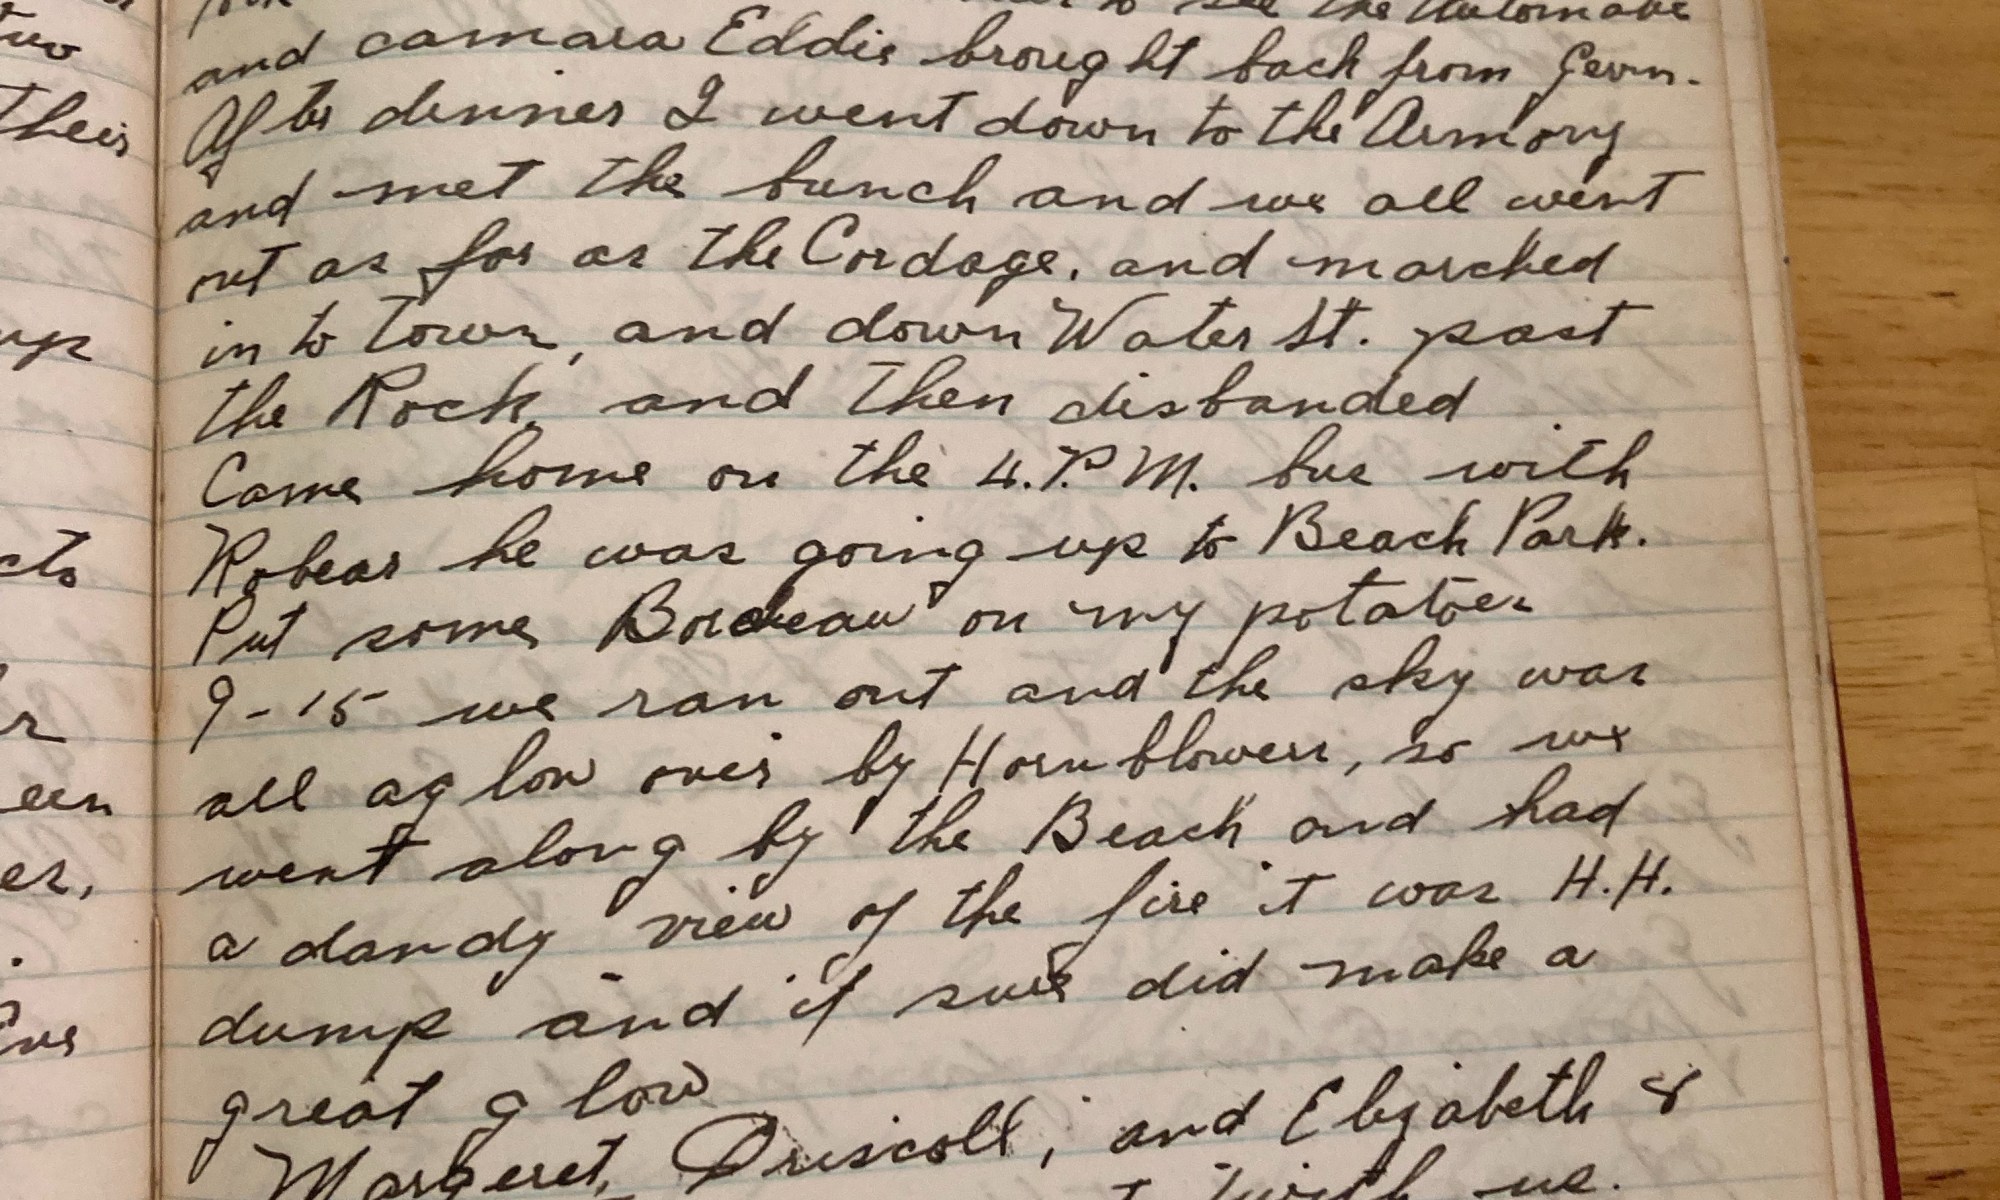 two
their
up
cts
een
er,
to see the Automatic
and camara Eddie brought back from Germ.
After dinner I went down to the Armory
and met the bunch and we all went
out as far as the Cordage, and marched
in to town, and down Water St. past
the Rock, and then disbanded
Came home on the 4.P.M. bus with
Robear he was going up to Beach Park.
Put some Bordeau on my potatoes
9-15 we ran out and the sky was
all aglow over by Hornblowers, so we
went along by the Beach and had
a dandy view of the fire it was H.H.
dump and it sure did make a
great glow
Margeret, Driscoll, and Elizabeth &
with us.